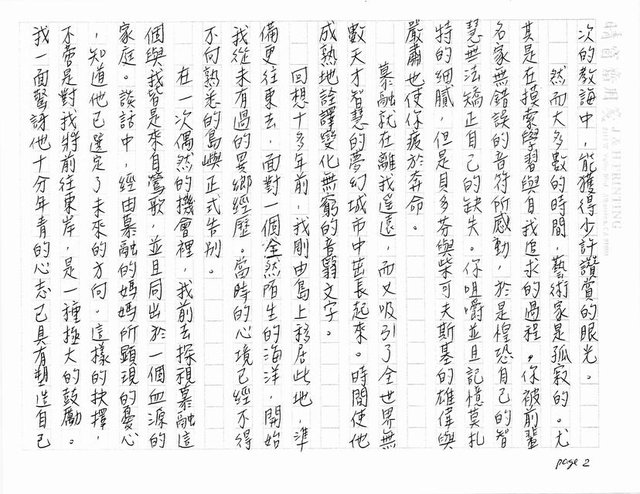 次的教誨中，能獲得少許讚賞的眼光。
然而大多數的時間，藝術家是孤寂的。尤
其是在摸索學習與自我追求的過程，你被前輩
名家無錯誤的音符所感動，於是惶恐自己的智
慧無法矯正自己的缺失。你咀嚼並且記憶莫扎
特的細膩，但是貝多芬與柴可夫斯基的雄偉與
嚴肅也使你疲於奔命。
慕融就在離我遙遠，而又吸引了全世界無
數天才智慧的夢幻城市中茁長起來。時間使他
成熟地詮譯變化無窮的音翳文字。
回想十多年前，我剛由島上移居此地，準
備更往東去，面對一個全然陌生的海洋，開始
我從未有過的異鄉經歷。當時的心境已經不得
不向熟悉的島嶼正式告別。
在一次偶然的機會裡，我前去探視慕融這
個與我皆是來自鶯歌，並且同出於一個血源的
家庭。談話中，經由慕融的媽媽所顯現的憂心
，知道他已選定了未來的方向，這樣的抉擇，
不啻是對我將前往東岸，是一種極大的鼓勵。
我一面驚訝他十分年青的心志已具有塑造自己
page 2